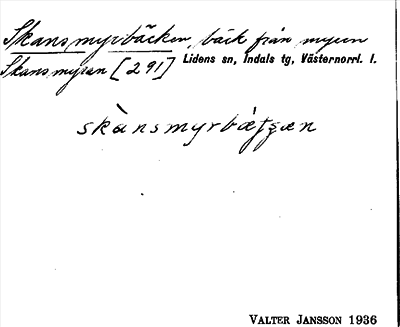 Skansmyrbäcken, bäck från myren
Skansmyran [291] Lidens sn, Indals tg, Västernorrl. l.
skànsmyrbǽtʂæn
VALTER JANSSON 1936